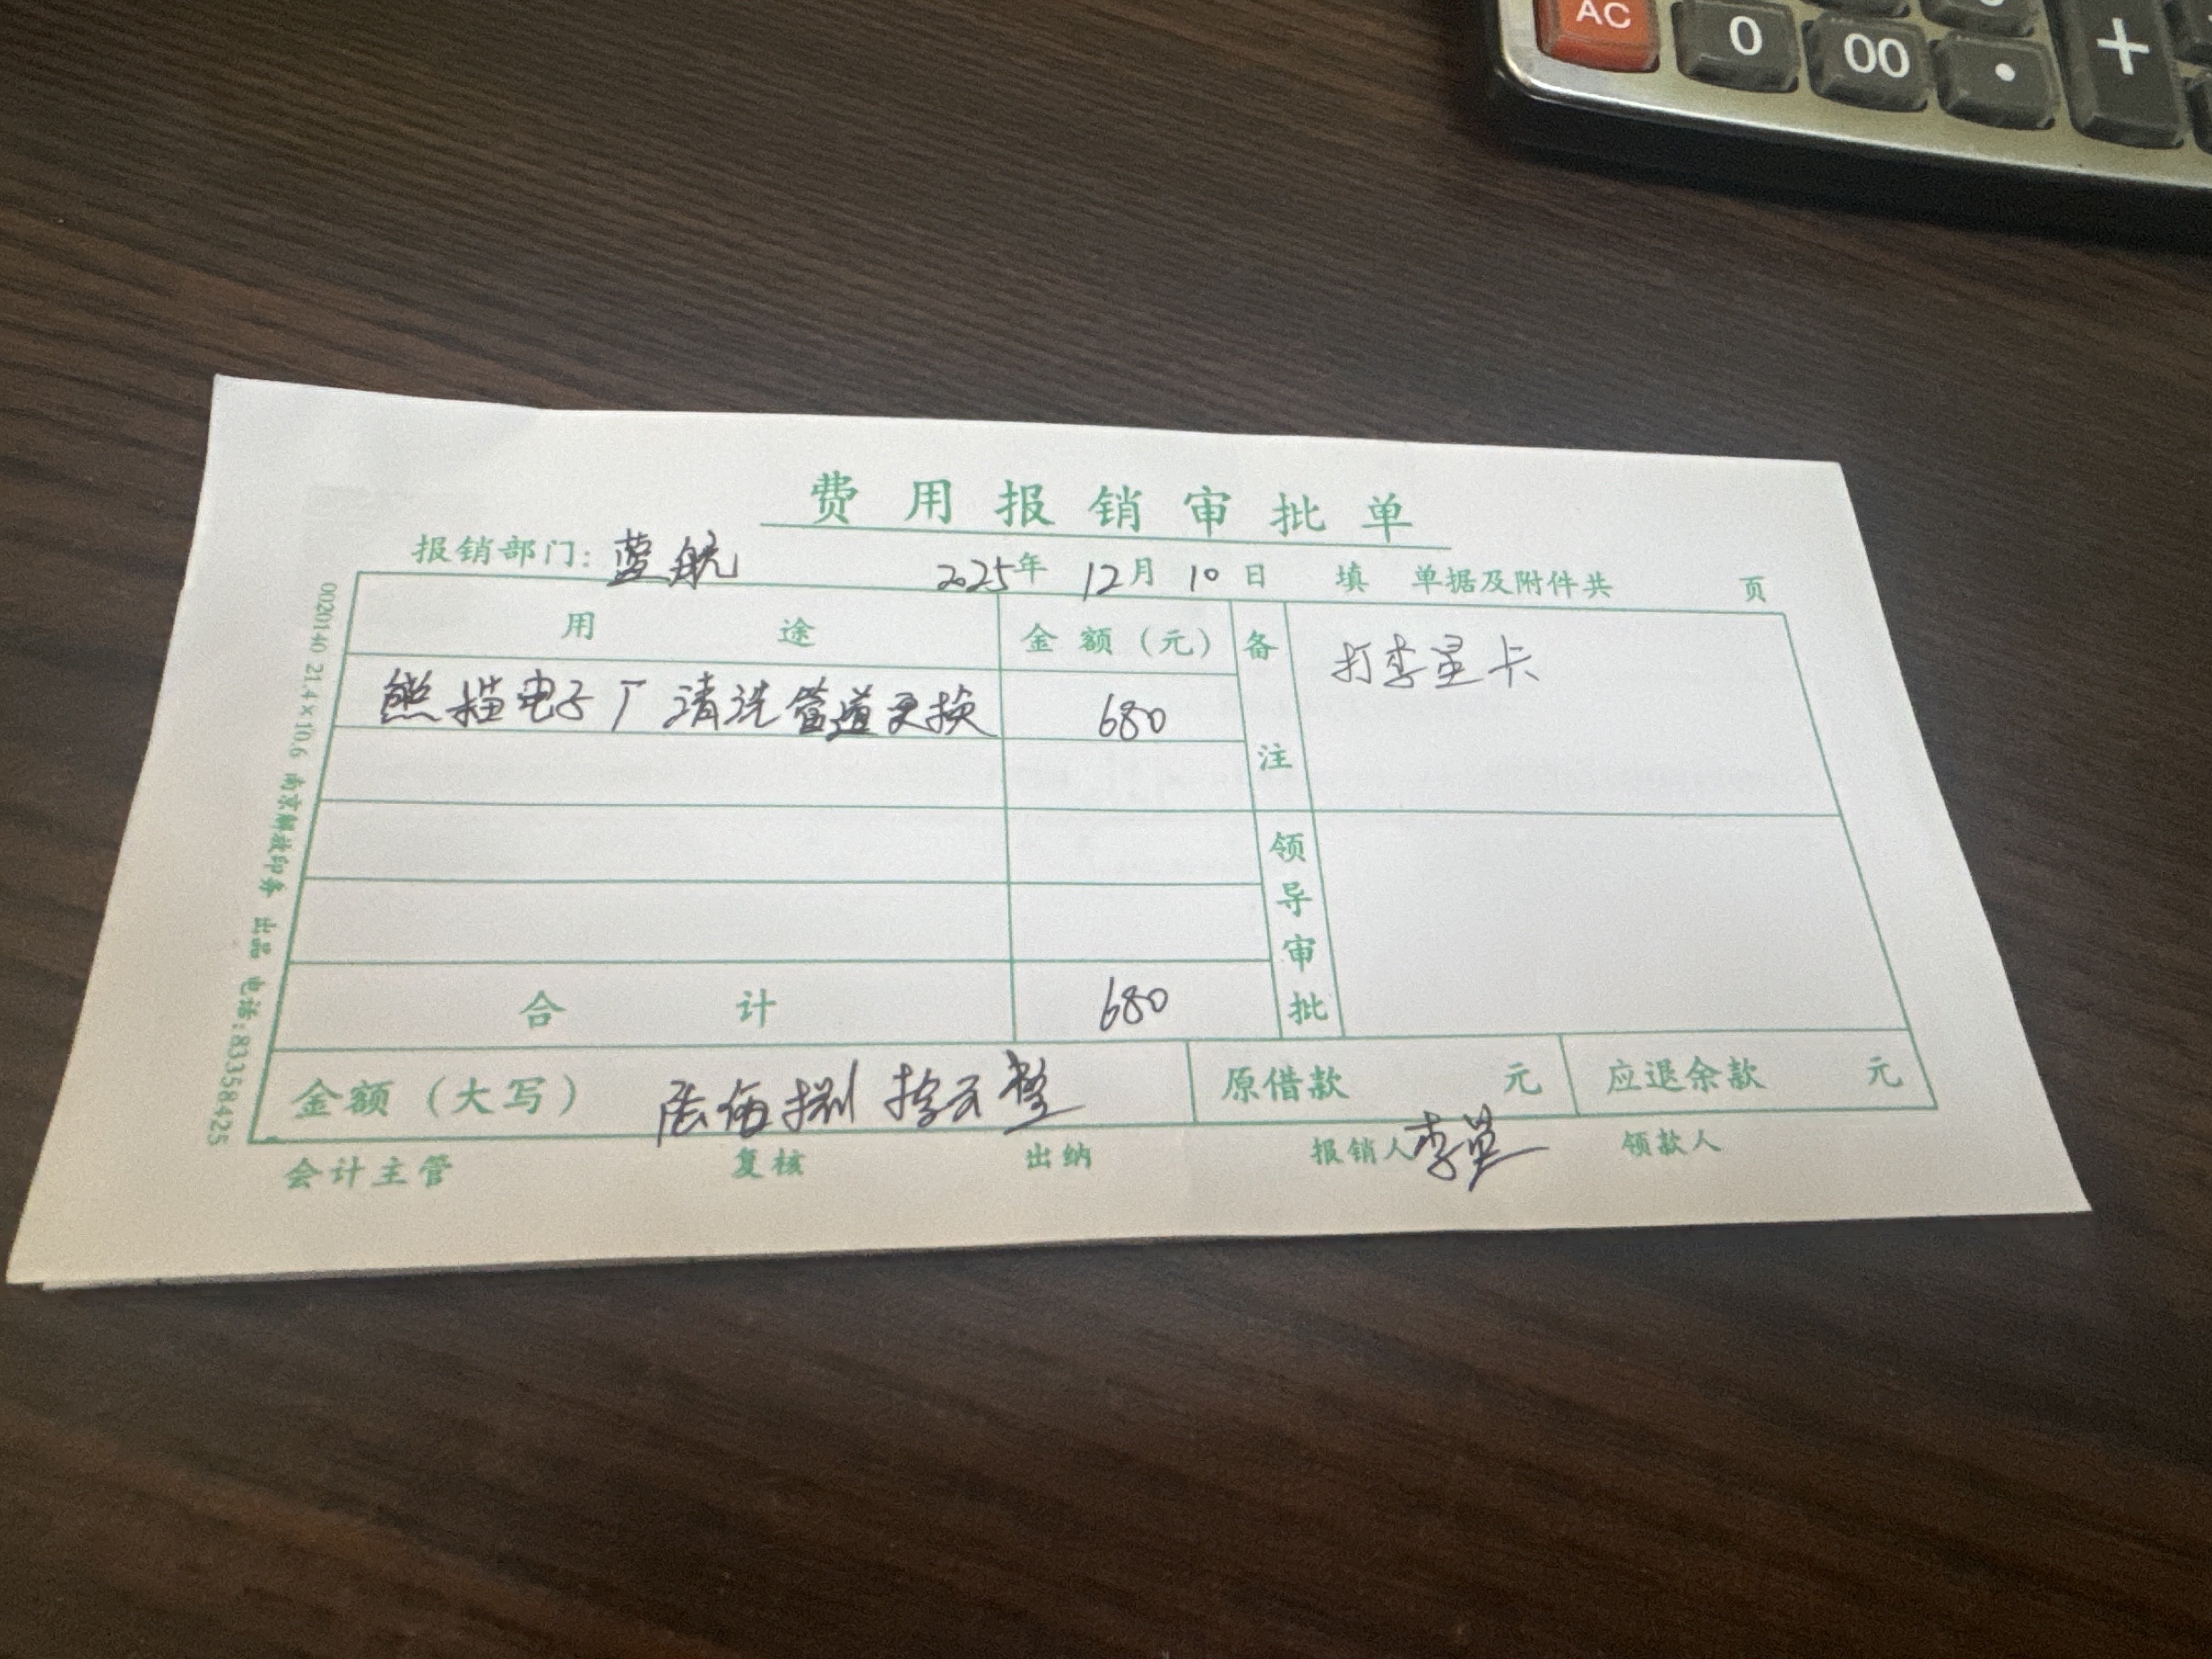 AC 0 00 . +
费用报销审批单
报销部门:蓝航 2025年 12月 10日 填 单据及附件共 页
用途 金额(元) 备注 打李星卡
熊猫电子厂清洗管道更换 680
领导审批
合计 680
金额(大写) 陆佰捌拾元整 原借款 元 应退余款 元
会计主管 复核 出纳 报销人 李星 领款人
0020140 21.4×10.6 南京解放印务 出品 电话:83358425